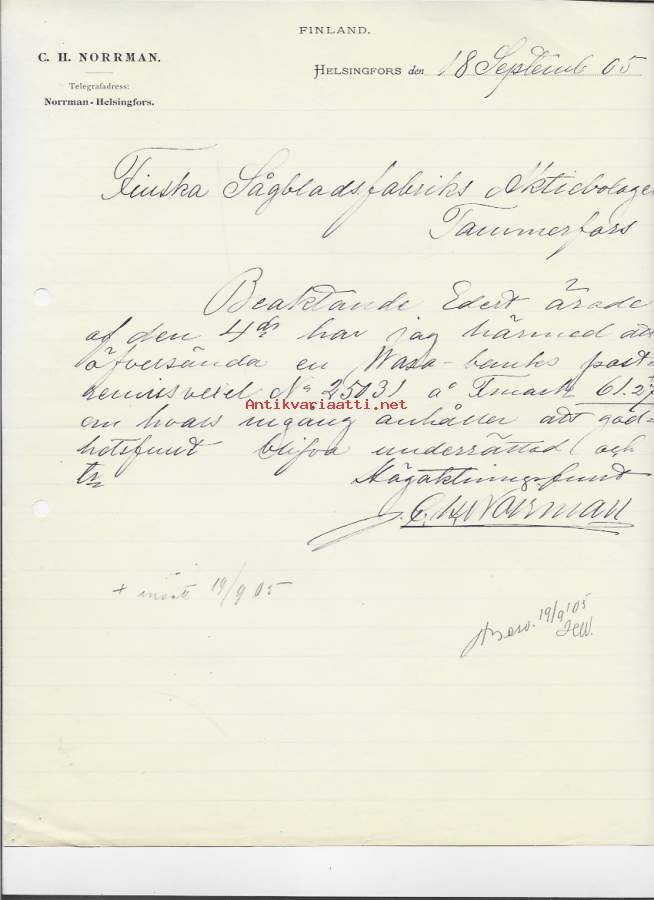 FINLAND.
C. H. NORRMAN.
Telegrafadress:
Norrman-Helsingfors.
HELSINGFORS den 18 Septemb 05
Finska Sågbladsfabriks Aktiebolage
Tammerfors
Beaktande Edert ärade
af den 4ds har jag härmed att
öfversända en Wasa-banks post-
remissvexel No 25031 à Fmark 61.27
Antikvariaatti.net
om hvars ingång anhåller att göd-
hetsfullt blifva underrättad och
Högaktningsfullt
C. H. Norrman
+ 19/9 05
Besv. 19/9 05